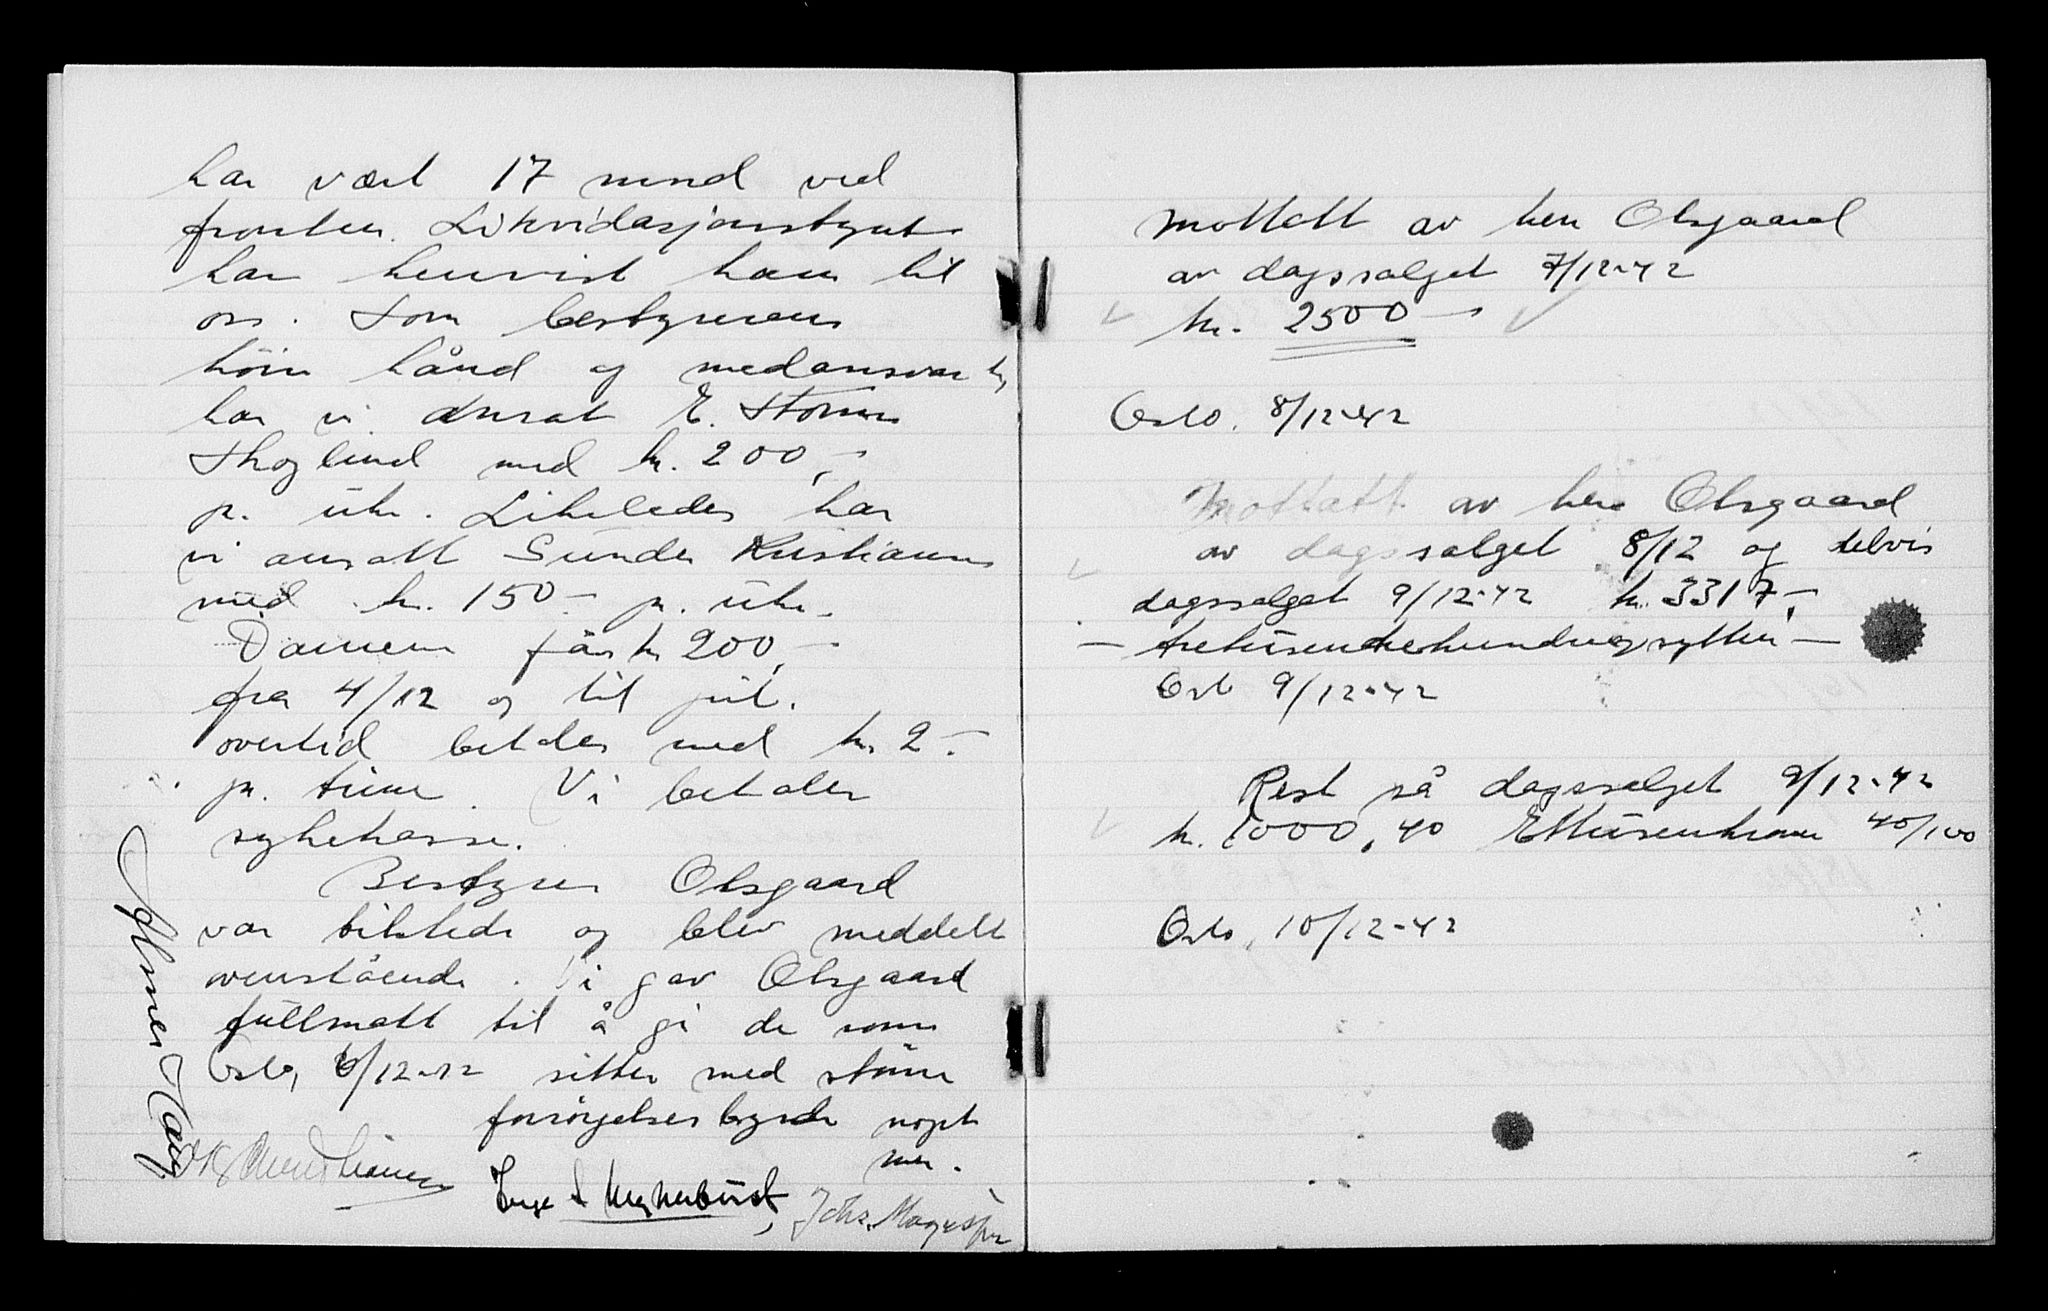 har vært 17 mnd ved
fronten. Likvidasjonsstyret
har henvist ham til
oss. Som bestyrerens
höire hånd og medansvarlig
har vi ansat E. Storm
Skoglund med kr. 200,-
pr. uke. Likeledes har
vi ansatt Sunde Kristiansen
med kr. 150.- pr. uke.
Damene får kr 200,-
fra 4/12 og til jul.
overtid betales med kr. 2.-
pr. time. Vi betaler
sykekasse.
Bestyrer Olsgaard
var tilstede og blev meddelt
ovenstående. Vi gav Olsgaard
fullmakt til å gi de som
Oslo, 6/12-42 sitter med större
forsörgelsesbyrde noget
mer.
Joh. Magnussen
Mottatt av herr Olsgaard
av dagssalget 7/12-42
kr. 2500-
Oslo. 8/12-42
Mottatt av herr Olsgaard
av dagssalget 8/12 og delvis
dagssalget 9/12-42 kr. 3317,-
- tretusentrehundreogsytten -
Oslo 9/12-42
Rest på dagssalget 9/12-42
kr. 1000,40 Ettusenkroner 40/100
Oslo, 10/12-42